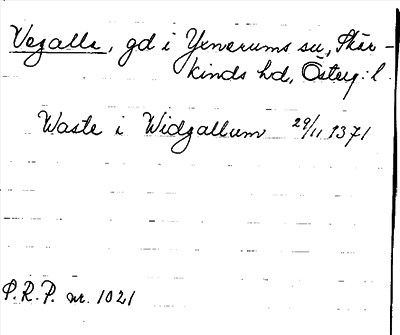 Vegalla, gd i Yxnerums sn, Skär-
kinds hd, Österg:l.
Waste i Widgallum 29/11 1371
P.R.P. nr. 1021